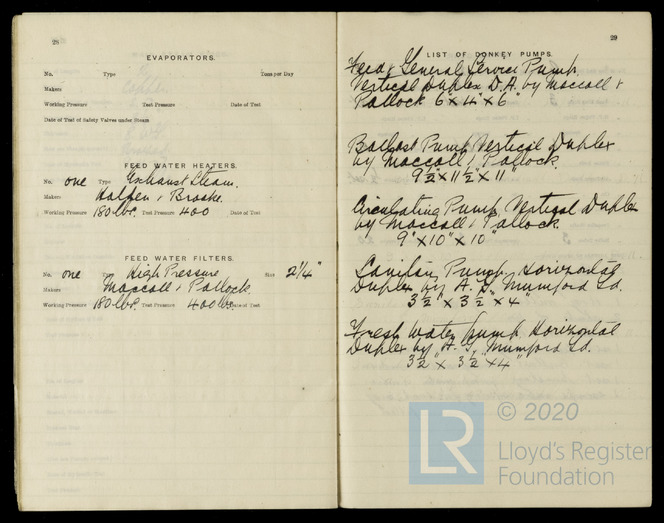 28
EVAPORATORS.
No. Type Tons per Day
Makers
Working Pressure Test Pressure Date of Test
Date of Test of Safety Valves under Steam
FEED WATER HEATERS.
No. one Type Exhaust Steam.
Makers
Working Pressure 180 lbs. Test Pressure 400 Date of Test
FEED WATER FILTERS.
No. one Type High Pressure Size 2 1/4"
Makers Maccoll & Pollock
Working Pressure 180 lbs. Test Pressure 400 lbs. Date of Test
29
LIST OF DONKEY PUMPS.
Feed & General Service Pump
Vertical Duplex D.A. by Maccoll &
Pollock 6" x 4" x 6"
Ballast Pump Vertical Duplex
by Maccoll & Pollock.
9 1/2" x 11 1/2" x 11"
Circulating Pump Vertical Duplex
by Maccoll & Pollock
9" x 10" x 10"
Sanitary Pump Horizontal
Duplex by A. G. Mumford Ld.
3 1/2" x 3 1/2" x 4"
Fresh Water pump Horizontal
Duplex by A. G. Mumford Ld.
3 1/2 x 3 1/2" x 4"
LR © 2020
Lloyd's Register
Foundation